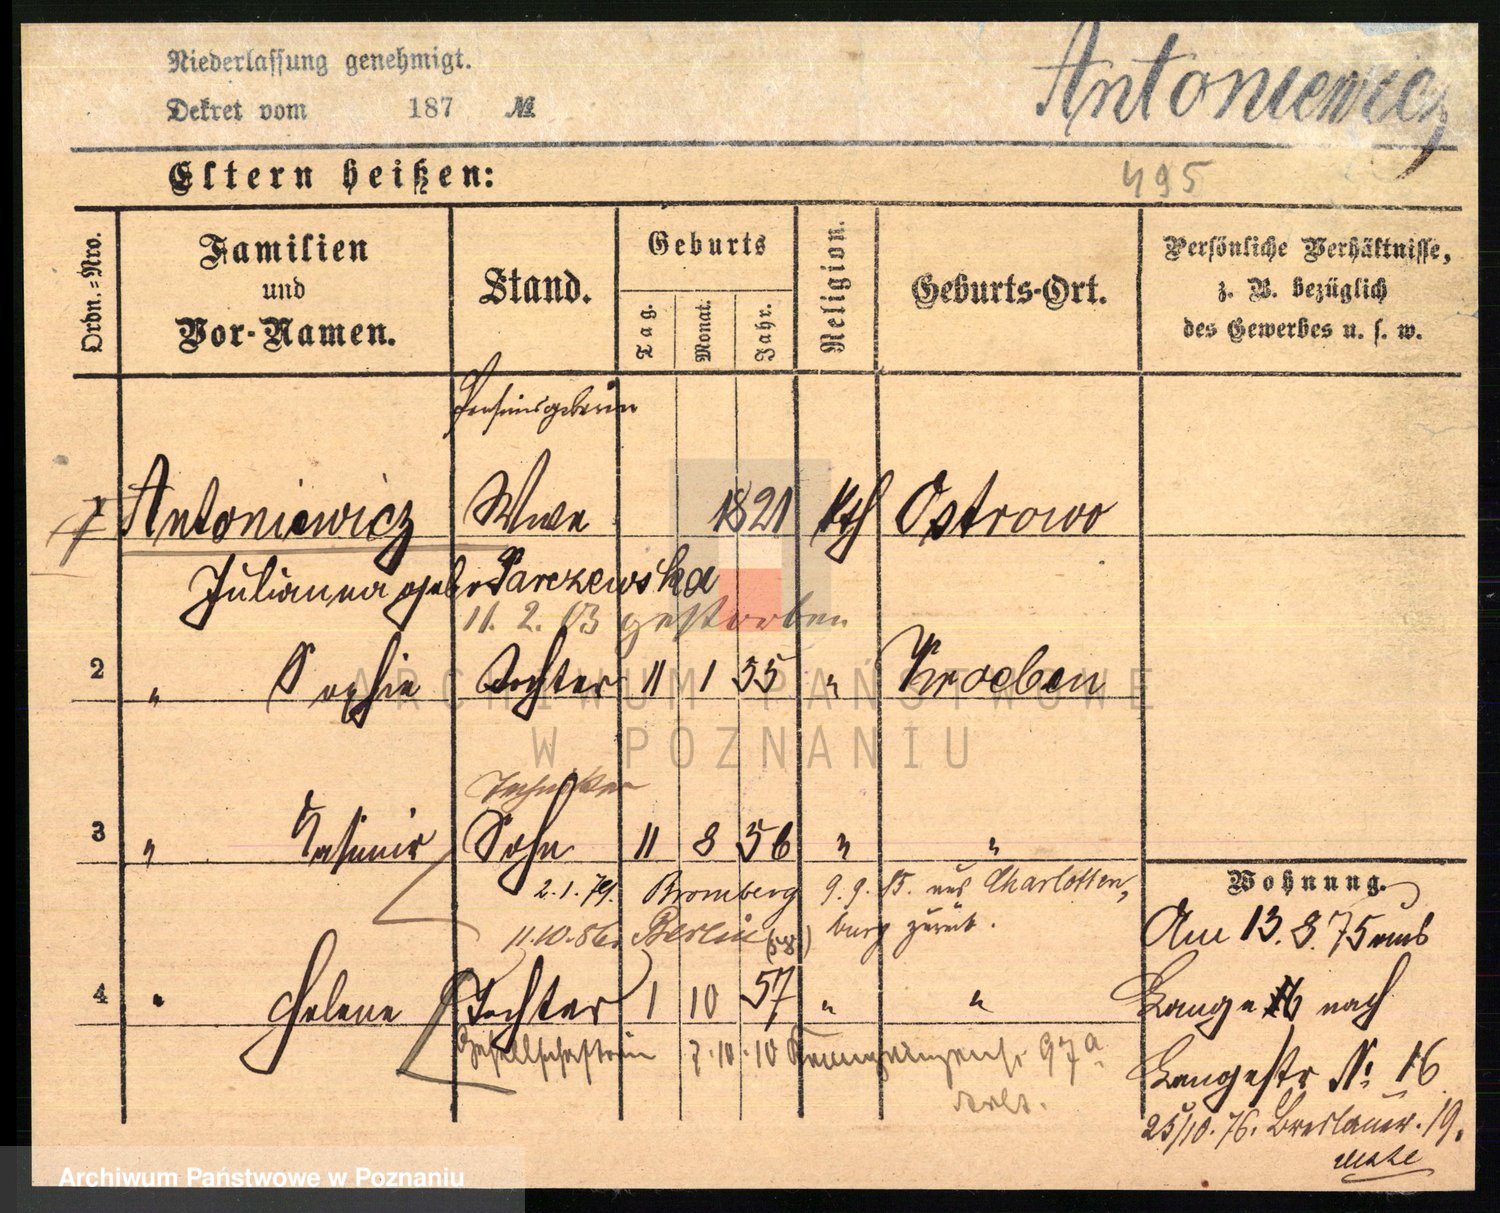 Niederlassung genehmigt.
Dekret vom 187 №
Antoniewicz
Eltern heißen:
495
Ordn.=Nro.
Familien
und
Vor-Namen.
Stand.
Geburts
Tag.
Monat.
Jahr.
Religion.
Geburts-Ort.
Persönliche Verhältnisse,
z. B. bezüglich
des Gewerbes u. s. w.
1 Antoniewicz Wwe 1821 kth Ostrowo
Julianna geb Parczewska
11. 2. 03 gestorben
2 " Sophie Tochter 11 1 55 " Kroeben
Techniker
3 " Kasimir Sohn 11 8 56 " "
2.1.79. Bromberg 9.9.85. aus Charlotten,
burg zurück.
11.10.86. Berlin
4 " Helene Tochter 1 10 57 " "
Gesellschafterin 7.10.10 97a
Wohnung.
Am 13.8.75 aus
Lange 6 nach
Langestr No 16
25/10.76. Breslauer. 19.
ARCHIWUM PAŃSTWOWE
W POZNANIU
Archiwum Państwowe w Poznaniu